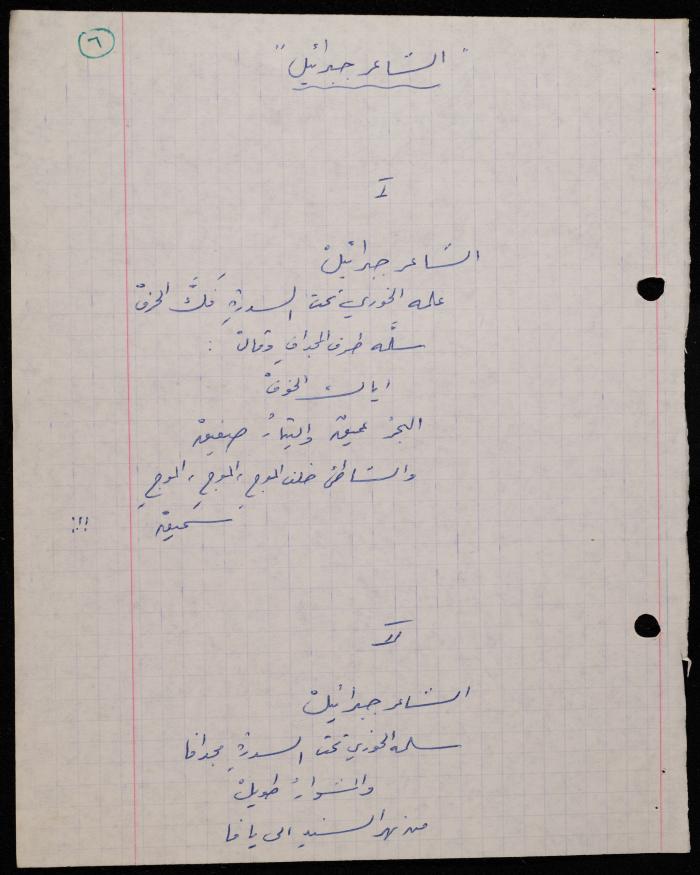 ٦
"الشاعر جبرائيل"
I
الشاعر جبرائيلْ
علمه الخوري تحت السدرةِ فَكَّ الحرفْ
سلَّمه طرف المجدافِ وقالْ :
اياك الخوفْ
البحرُ عميقْ والتيارُ صفيقْ
والشاطئ خلف الموجِ، الموجِ، الموجِ
سحيقْ !!!
II
الشاعر جبرائيلْ
سلمه الخوري تحت السدرةِ مجدافا
والمشوارُ طويلْ
من نهر السند الى يافا